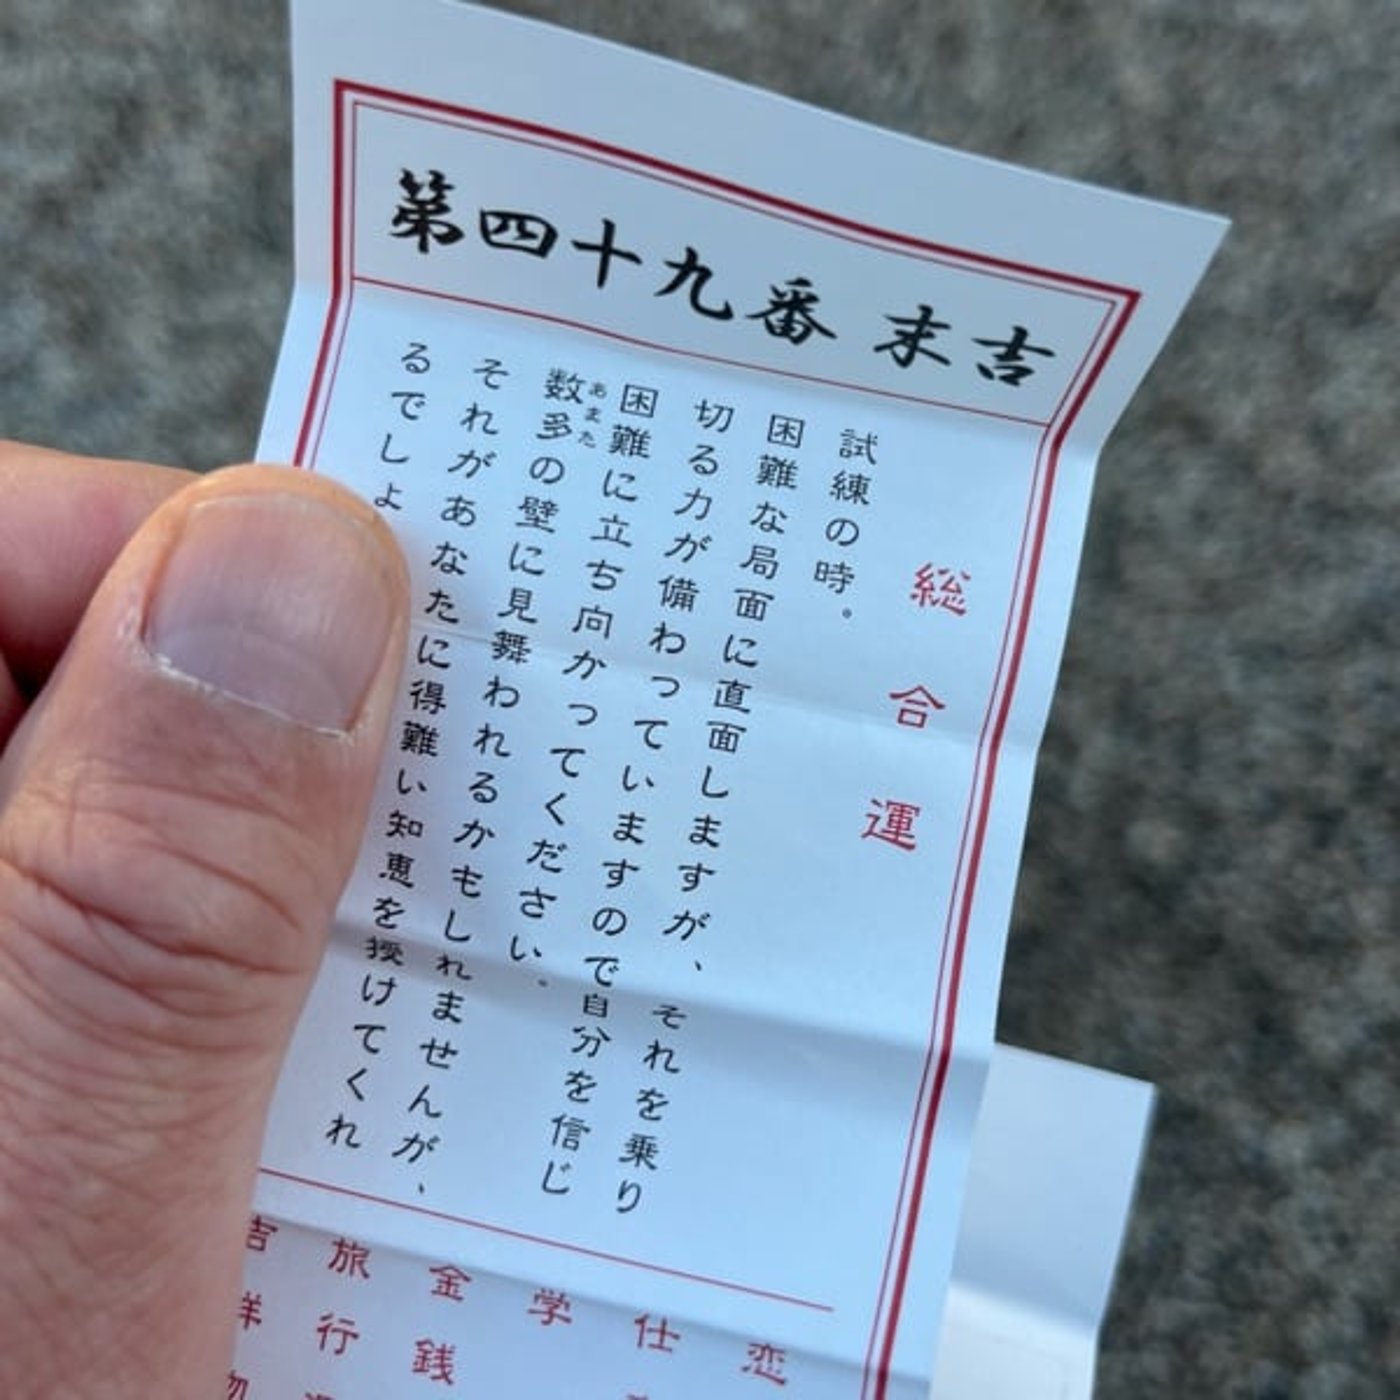 第四十九番 末吉
総合運
試練の時。
困難な局面に直面しますが、それを乗り
切る力が備わっていますので自分を信じ
困難に立ち向かってください。
あまた
数多の壁に見舞われるかもしれませんが、
それがあなたに得難い知恵を授けてくれ
るでしょ
恋
仕
学
金銭
旅行
吉